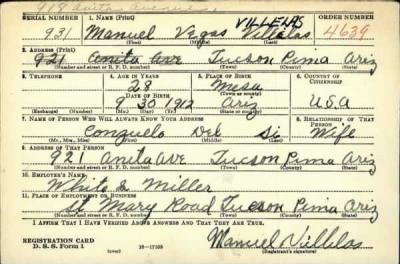 918 Anita Avenue
SERIAL NUMBER 1. NAME (Print) VILLELAS ORDER NUMBER
931 Manuel Vegas Villelas 4639
(First) (Middle) (Last)
2. ADDRESS (Print)
921 Anita Ave Tucson Pima Ariz
(Number and street or R. F. D. number) (Town) (County) (State)
3. TELEPHONE 4. AGE IN YEARS 5. PLACE OF BIRTH 6. COUNTRY OF CITIZENSHIP
29 Mesa
DATE OF BIRTH (Town or county)
9 30 1912 Ariz U.S.A
(Exchange) (Number) (Mo.) (Day) (Yr.) (State or country)
7. NAME OF PERSON WHO WILL ALWAYS KNOW YOUR ADDRESS 8. RELATIONSHIP OF THAT PERSON
Consuelo Wife
(Mr., Mrs., Miss) (First) (Middle) (Last)
9. ADDRESS OF THAT PERSON
921 Anita Ave Tucson Pima Ariz
(Number and street or R. F. D. number) (Town) (County) (State)
10. EMPLOYER'S NAME
White & Miller
11. PLACE OF EMPLOYMENT OR BUSINESS
St Mary Road Tucson Pima Ariz
(Number and street or R. F. D. number) (Town) (County) (State)
I AFFIRM THAT I HAVE VERIFIED ABOVE ANSWERS AND THAT THEY ARE TRUE.
REGISTRATION CARD
D. S. S. Form 1 (over) 16—17105 Manuel Villelas
(Registrant's signature)